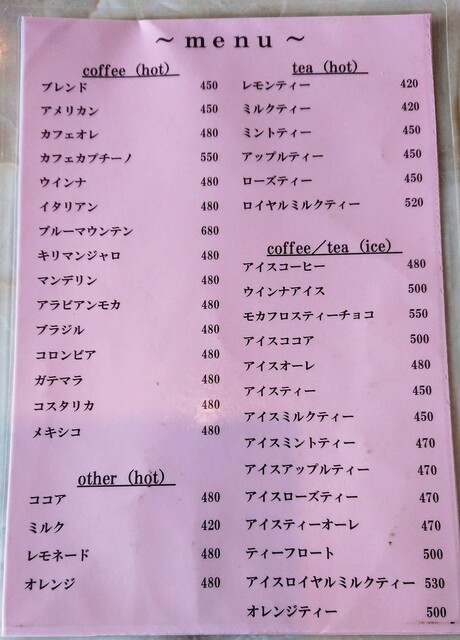 ～menu～
coffee (hot)
ブレンド 450
アメリカン 450
カフェオレ 480
カフェカプチーノ 550
ウインナ 480
イタリアン 480
ブルーマウンテン 680
キリマンジャロ 480
マンデリン 480
アラビアンモカ 480
ブラジル 480
コロンビア 480
ガテマラ 480
コスタリカ 480
メキシコ 480
other (hot)
ココア 480
ミルク 420
レモネード 480
オレンジ 480
tea (hot)
レモンティー 420
ミルクティー 420
ミントティー 450
アップルティー 450
ローズティー 450
ロイヤルミルクティー 520
coffee／tea (ice)
アイスコーヒー 480
ウインナアイス 500
モカフロスティーチョコ 550
アイスココア 500
アイスオーレ 480
アイスティー 450
アイスミルクティー 450
アイスミントティー 470
アイスアップルティー 470
アイスローズティー 470
アイスティーオーレ 470
ティーフロート 500
アイスロイヤルミルクティー 530
オレンジティー 500